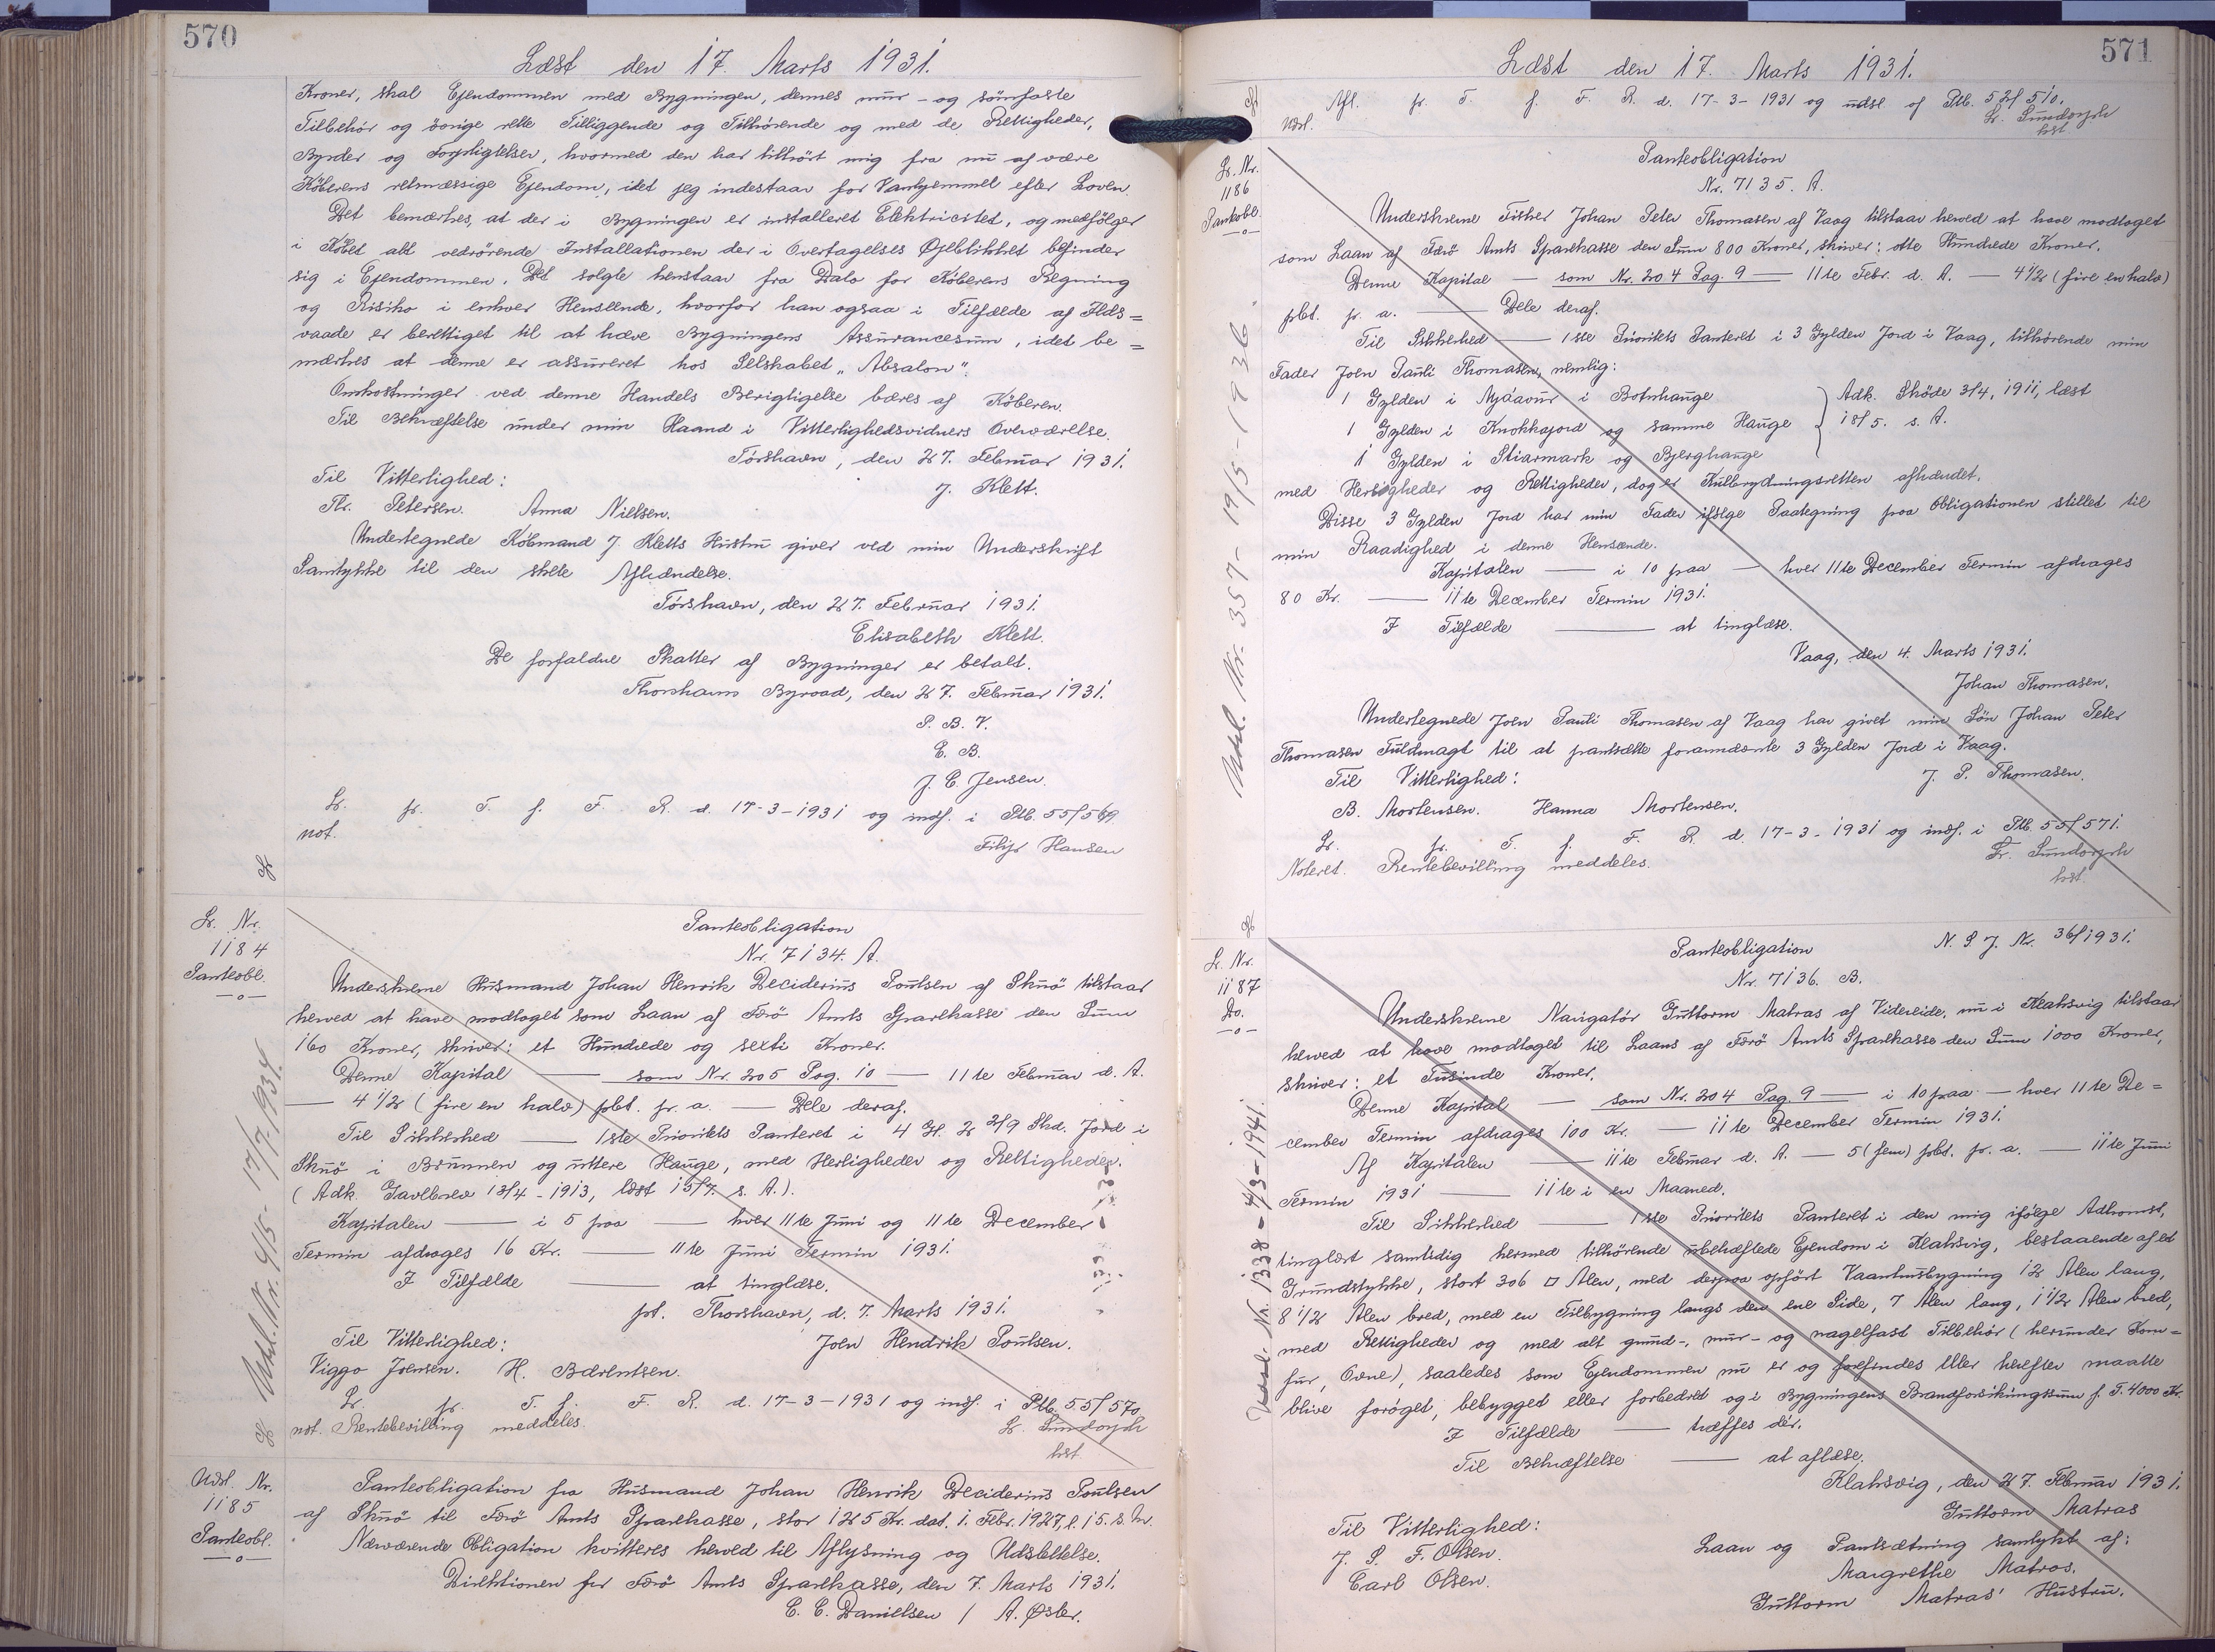 570
Læst den 17. Marts 1931.
Kroner, skal Ejendommen med Bygningen, dennes mur- og sömfaste
Tilbehör og övrige rette Tilliggende og Tilhörende og med de Rettigheder,
Byrder og Forpligtelser, hvormed den har tilhört mig fra nu af være
Köberens retmæssige Ejendom, idet jeg indestaar for Vanhjemmel efter Loven.
Det bemærkes, at der i Bygningen er installeret Elektricitet, og medfölger
i Köbet alt vedrörende Installationen der i Overtagelses Öjeblikket befinder
sig i Ejendommen. Det solgte henstaar fra Dato for Köberens Regning
og Risiko i enhver Henseende, hvorfor han ogsaa i Tilfælde af Ilds=
vaade er berettiget til at hæve Bygningens Assurancesum, idet be=
mærkes at denne er assureret hos Selskabet „Absalon“.
Omkostninger ved denne Handels Berigtigelse bæres af Köberen.
Til Bekræftelse under min Haand i Vitterlighedsvidners Overværelse.
Tórshavn, den 27. Februar 1931.
Til Vitterlighed:
J. Klett.
Kr. Petersen. Anna Nielsen.
Undertegnede Köbmand J. Kletts Hustru giver ved min Underskrift
Samtykke til den skete Afhændelse.
Tórshavn, den 27. Februar 1931.
Elisabeth Klett.
De forfaldne Skatter af Bygninger er betalt.
Thorshavns Byraad, den 27. Februar 1931.
P. B. V.
E. B.
J. C. Jensen.
Lr. fr. T. f. F. R. d. 17-3-1931 og indf. i Ptb. 55/569.
not.
Filip Hansen
Lr. Nr.
1184
Panteobl.
—o—
Udsl. Nr. 915 - 17/7-1934.
Panteobligation
Nr. 7134. A.
Underskrevne Husmand Johan Henrik Deciderius Poulsen af Skuö tilstaar
herved at have modtaget som Laan af Færö Amts Sparekasse den Sum
160 Kroner, skriver: et Hundrede og sexti Kroner.
Denne Kapital — som Nr. 205 Pag. 10 — 11te Februar d. A.
— 4 1/2 (fire en halv) pbt. pr. a. — Dele deraf.
Til Sikkerhed — 1ste Prioritets Panteret i 4 Gl. 2 2/9 Skd. Jord i
Skuö i Brunnen og uttere Hauge, med Herligheder og Rettigheder.
(Adk. Gavebrev 13/4-1913, læst 15/7. s. A.).
Kapitalen — i 5 paa — hver 11te Juni og 11te December
Termin afdrages 16 Kr. — 11te Juni Termin 1931.
I Tilfælde — at tinglæse.
pt. Thorshavn, d. 7. Marts 1931.
Til Vitterlighed:
Joen Hendrik Poulsen.
Viggo Joensen. H. Bærentsen.
Lr. fr. T. f. F. R. d. 17-3-1931 og indf. i Ptb. 55/570.
not. Rentebevilling meddeles.
Fr. Sundorph
kst.
Udsl. Nr.
1185
Panteobl.
—o—
Panteobligation fra Husmand Johan Henrik Deciderius Poulsen
af Skuö til Færö Amts Sparekasse, stor 125 Kr. dat. 1. Febr. 1927, l. 15. s. M.
Nærværende Obligation kvitteres herved til Aflysning og Udslettelse.
Direktionen for Færö Amts Sparekasse, den 7. Marts 1931.
C. C. Danielsen / A. Øster.
571
Læst den 17. Marts 1931.
Afl. fr. T. f. F. R. d. 17-3-1931 og udsl. af Ptb. 52/510.
Udsl.
Fr. Sundorph
kst
Lr. Nr.
1186
Panteobl.
—o—
Udsl. Nr. 357 - 19/5-1936.
Panteobligation
Nr. 7135. A.
Underskrevne Fisker Johan Peter Thomasen af Vaag tilstaar herved at have modtaget
som Laan af Færö Amts Sparekasse den Sum 800 Kroner, skriver: otte Hundrede Kroner.
Denne Kapital — som Nr. 204 Pag. 9 — 11te Febr. d. A. — 4 1/2 (fire en halv)
pbt. pr. a. — Dele deraf.
Til Sikkerhed — 1ste Prioritets Panteret i 3 Gylden Jord i Vaag, tilhörende min
Fader Joen Pauli Thomasen, nemlig:
1 Gylden i Nyáavur i Botnhauge
1 Gylden i Knokkajord og samme Hauge
1 Gylden i Stiarmark og Bjerghauge
} Adk. Sköde 3/4, 1911, læst
18/5. s. A.
med Herligheder og Rettigheder, dog er Kulbrydningsretten afhændet.
Disse 3 Gylden Jord har min Fader ifølge Paategning paa Obligationen stillet til
min Raadighed i denne Hensende.
Kapitalen — i 10 paa — hver 11te December Termin afdrages
80 Kr. — 11te December Termin 1931.
I Tilfælde — at tinglæse.
Vaag, den 4. Marts 1931.
Johan Thomasen.
Undertegnede Joen Pauli Thomasen af Vaag har givet min Sön Johan Peter
Thomasen Fuldmagt til at pantsætte forannævnte 3 Gylden Jord i Vaag.
Til Vitterlighed:
J. P. Thomasen.
B. Mortensen. Hanna Mortensen.
Lr. fr. T. f. F. R. d. 17-3-1931 og indf. i Ptb. 55/571.
Noteret. Rentebevilling meddeles.
Fr. Sundorph
kst.
Lr. Nr.
1187
Do.
—o—
Udsl. Nr. 1338 - 4/3-1941.
Panteobligation
N. S. J. Nr. 36/1931.
Nr. 7136. B.
Underskrevne Navigatör Guttorm Matras af Videreide, nu i Klaksvig tilstaar
herved at have modtaget til Laans af Færö Amts Sparekasse den Sum 1000 Kroner,
skriver: et Tusinde Kroner.
Denne Kapital — som Nr. 204 Pag. 9 — i 10 paa — hver 11te De=
cember Termin afdrages 100 Kr. — 11te December Termin 1931.
Af Kapitalen — 11te Februar d. A. — 5 (fem) pbt. pr. a. — 11te Juni
Termin 1931 — 11te i en Maaned.
Til Sikkerhed — 1ste Prioritets Panteret i den mig ifølge Adkomst,
tinglæst samtidig hermed tilhörende ubehæftede Ejendom i Klaksvig, bestaaende af et
Grundstykke, stort 306 □ Alen, med derpaa opfört Vaanhusbygning 12 Alen lang,
8 1/2 Alen bred, med en Tilbygning langs den ene Side, 7 Alen lang, 1 1/2 Alen bred,
med Rettigheder og med alt grund-, mur- og nagelfast Tilbehör (herunder Kom=
fur, Ovne), saaledes som Ejendommen nu er og forefindes eller herefter maatte
blive foröget, bebygget eller forbedret og i Bygningens Brandforsikringssum f. T. 4000 Kr.
I Tilfælde — træffes dér.
Til Bekræftelse — at aflæse.
Klaksvig, den 27. Februar 1931.
Guttorm Matras
Til Vitterlighed:
Laan og Pantsætning samtykt af:
J. P. F. Olsen.
Margrethe Matras.
Carl Olsen.
Guttorm Matras' Hustru.